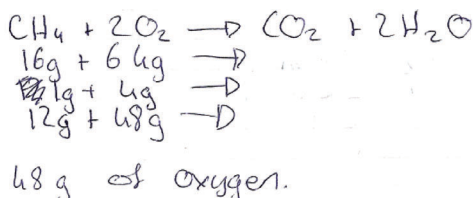 CH₄ + 2O₂ → CO₂ + 2H₂O
16g + 64g →
1g + 4g →
12g + 48g →
48 g of oxygen.